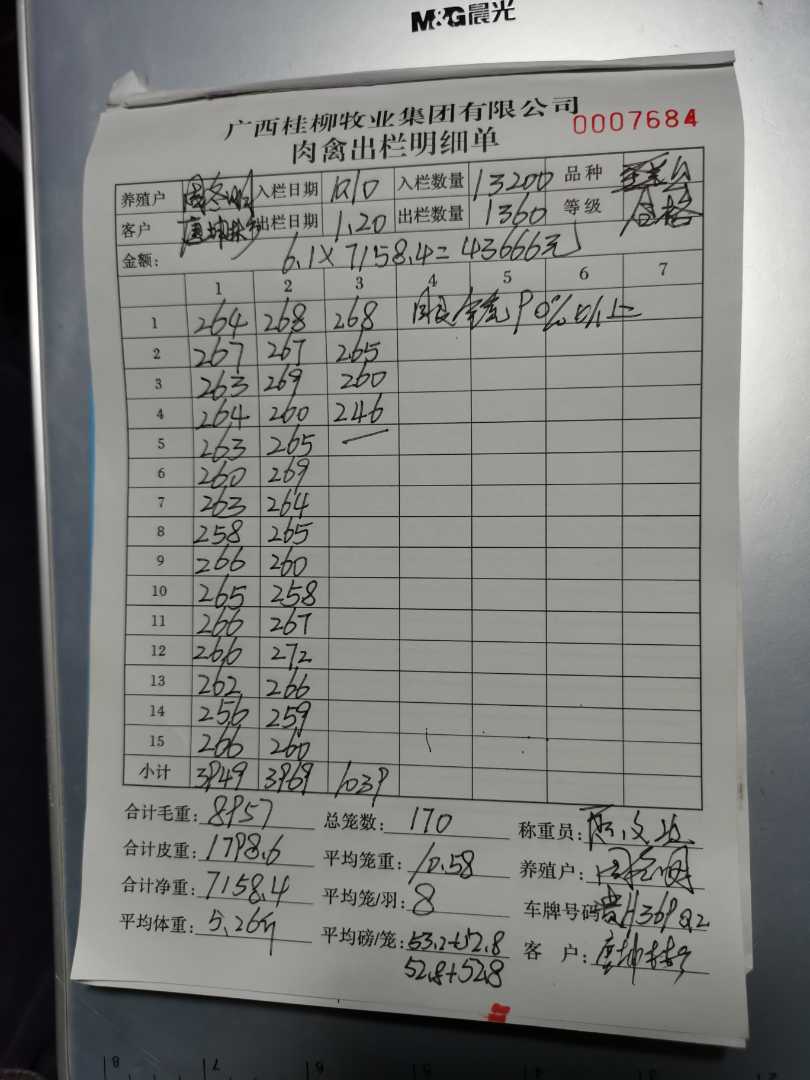 M&G晨光
广西桂柳牧业集团有限公司
肉禽出栏明细单 0007684
养殖户 入栏日期 10.10 入栏数量 13200 品种
客户 唐坤 出栏日期 1.20 出栏数量 1360 等级 合格
金额: 6.1×7158.4=43666元
1 2 3 4 5 6 7
1 264 268 268 90%以上
2 267 267 265
3 263 269 260
4 264 260 246
5 263 265 —
6 260 269
7 263 264
8 258 265
9 266 260
10 265 258
11 266 267
12 266 272
13 262 266
14 256 259
15 266 260
小计 3949 3969 1039
合计毛重: 8957 总笼数: 170 称重员:
合计皮重: 1798.6 平均笼重: 10.58 养殖户:
合计净重: 7158.4 平均笼/羽: 8 车牌号码
平均体重: 5.26斤 平均磅/笼: 53.2+52.8 客 户: 唐坤
52.8+52.8
8 7 6 5 4 3 2